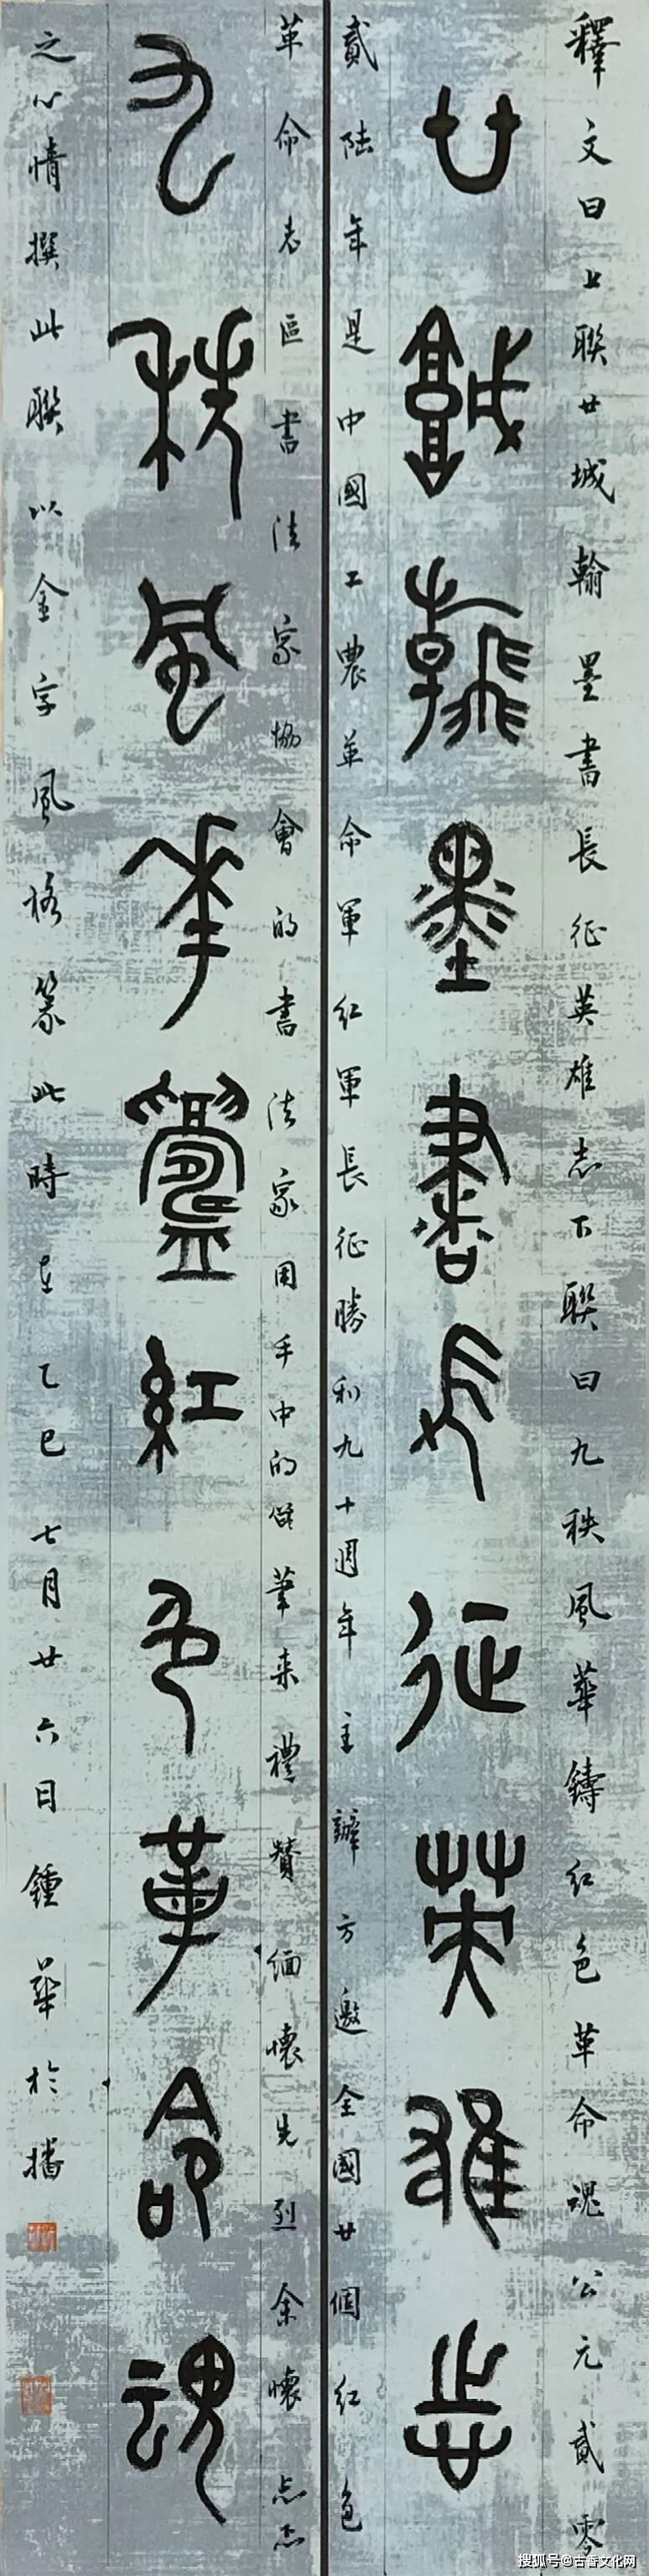 釋文曰上聯廿城翰墨書長征英雄志下聯曰九秩風華鑄紅色革命魂公元貳零
廿城翰墨書長征英雄志
貳陸年是中國工農革命軍紅軍長征勝利九十週年主辦方邀全國廿個紅色
革命老區書法家協會的書法家用手中的筆来禮贊緬懷先烈余懷忐忑
九秩風華鑄紅色革命魂
之心情撰此聯以金字風格篆此時在乙巳七月廿六日鍾華於播
搜狐号@古香文化网